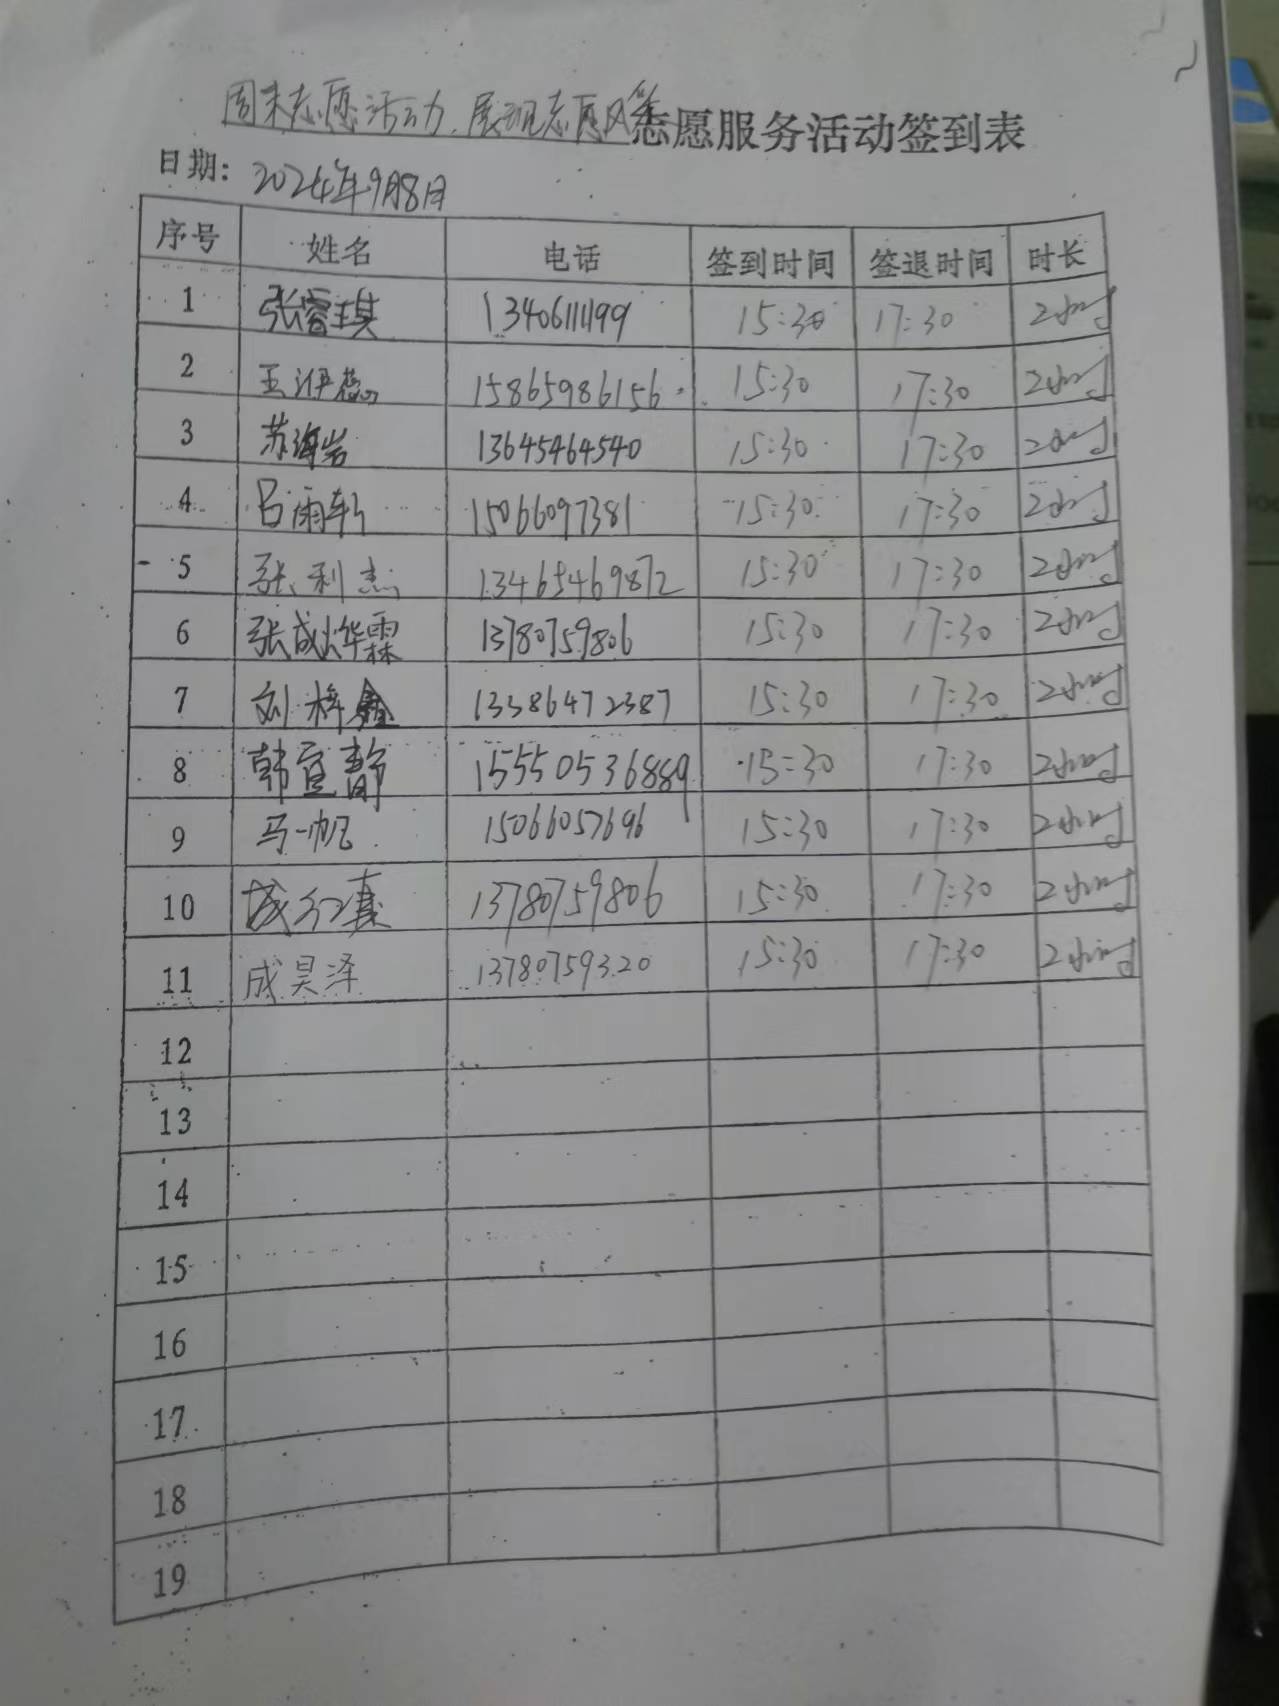 周末志愿活动,展现志愿风采志愿服务活动签到表
日期: 2024年9月8日
序号 姓名 电话 签到时间 签退时间 时长
1 张睿琪 13406111199 15:30 17:30 2小时
2 王 15865986156 15:30 17:30 2小时
3 苏海岩 13645464540 15:30 17:30 2小时
4 吕雨轩 15066097381 15:30 17:30 2小时
5 张利杰 13465469872 15:30 17:30 2小时
6 张成烨霖 13780759806 15:30 17:30 2小时
7 刘梓鑫 15:30 17:30 2小时
8 韩宜静 15550536889 15:30 17:30 2小时
9 马一帆 15066057696 15:30 17:30 2小时
10 13780759806 15:30 17:30 2小时
11 成昊泽 13780759320 15:30 17:30 2小时
12
13
14
15
16
17
18
19